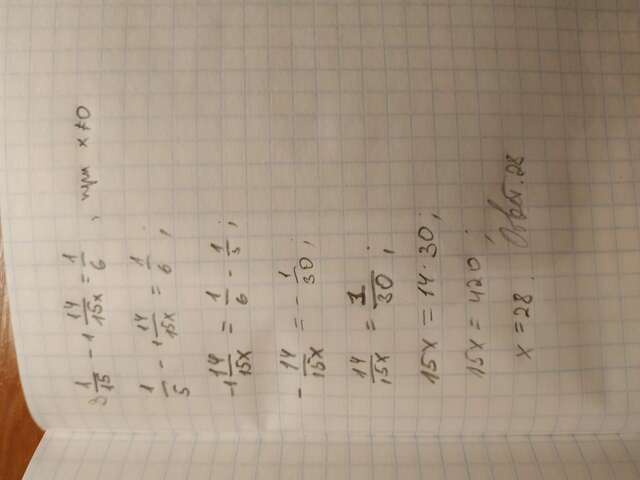 3 1/15 - 1 14/15x = 1/6 , при x≠0
1/5 - 1 14/15x = 1/6 ;
-1 14/15x = 1/6 - 1/5 ;
- 14/15x = - 1/30 ;
14/15x = 1/30 ;
15x = 14·30 ;
15x = 420 ;
x = 28 . Ответ. 28